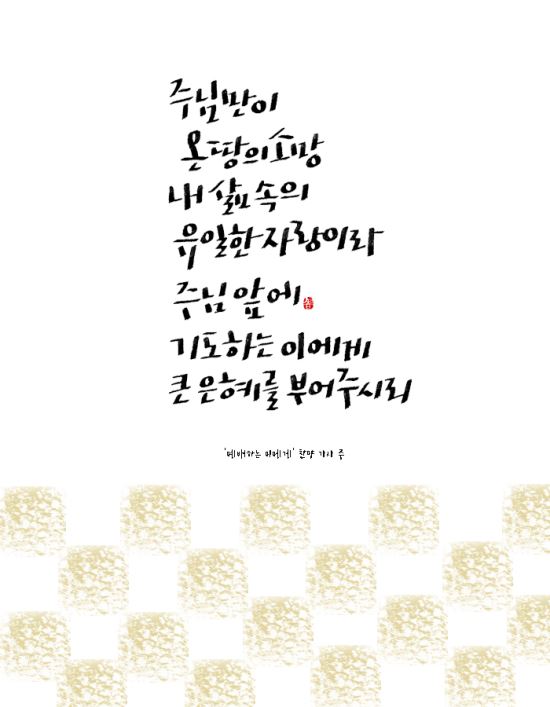 주님만이
온 땅의 소망
내 삶 속의
유일한 자랑이라
주님 앞에
기도하는 이에게
큰 은혜를 부어주시리
'예배하는 이에게' 찬양 가사 중